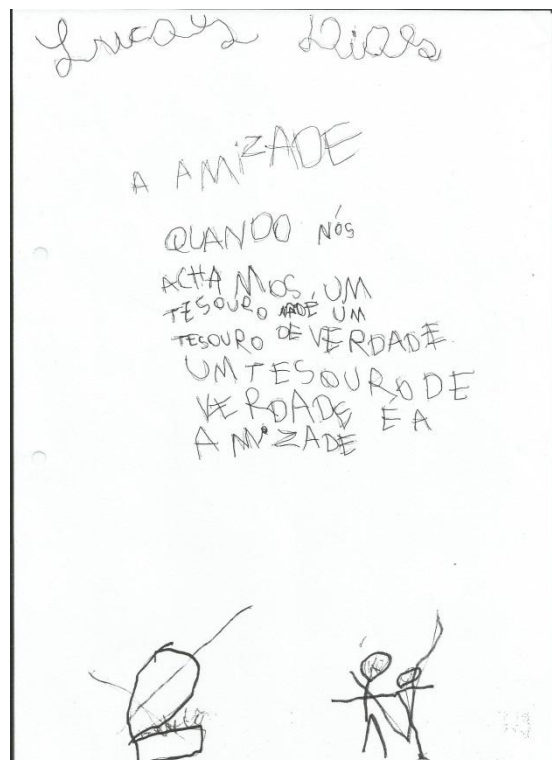 Lucas Dias
A AMiZADE
QUANDO NÓS
ACHAMOS UM
TESOURO NÃO É UM
TESOURO DE VERDADE.
UM TESOURO DE
VERDADE É A
AMiZADE